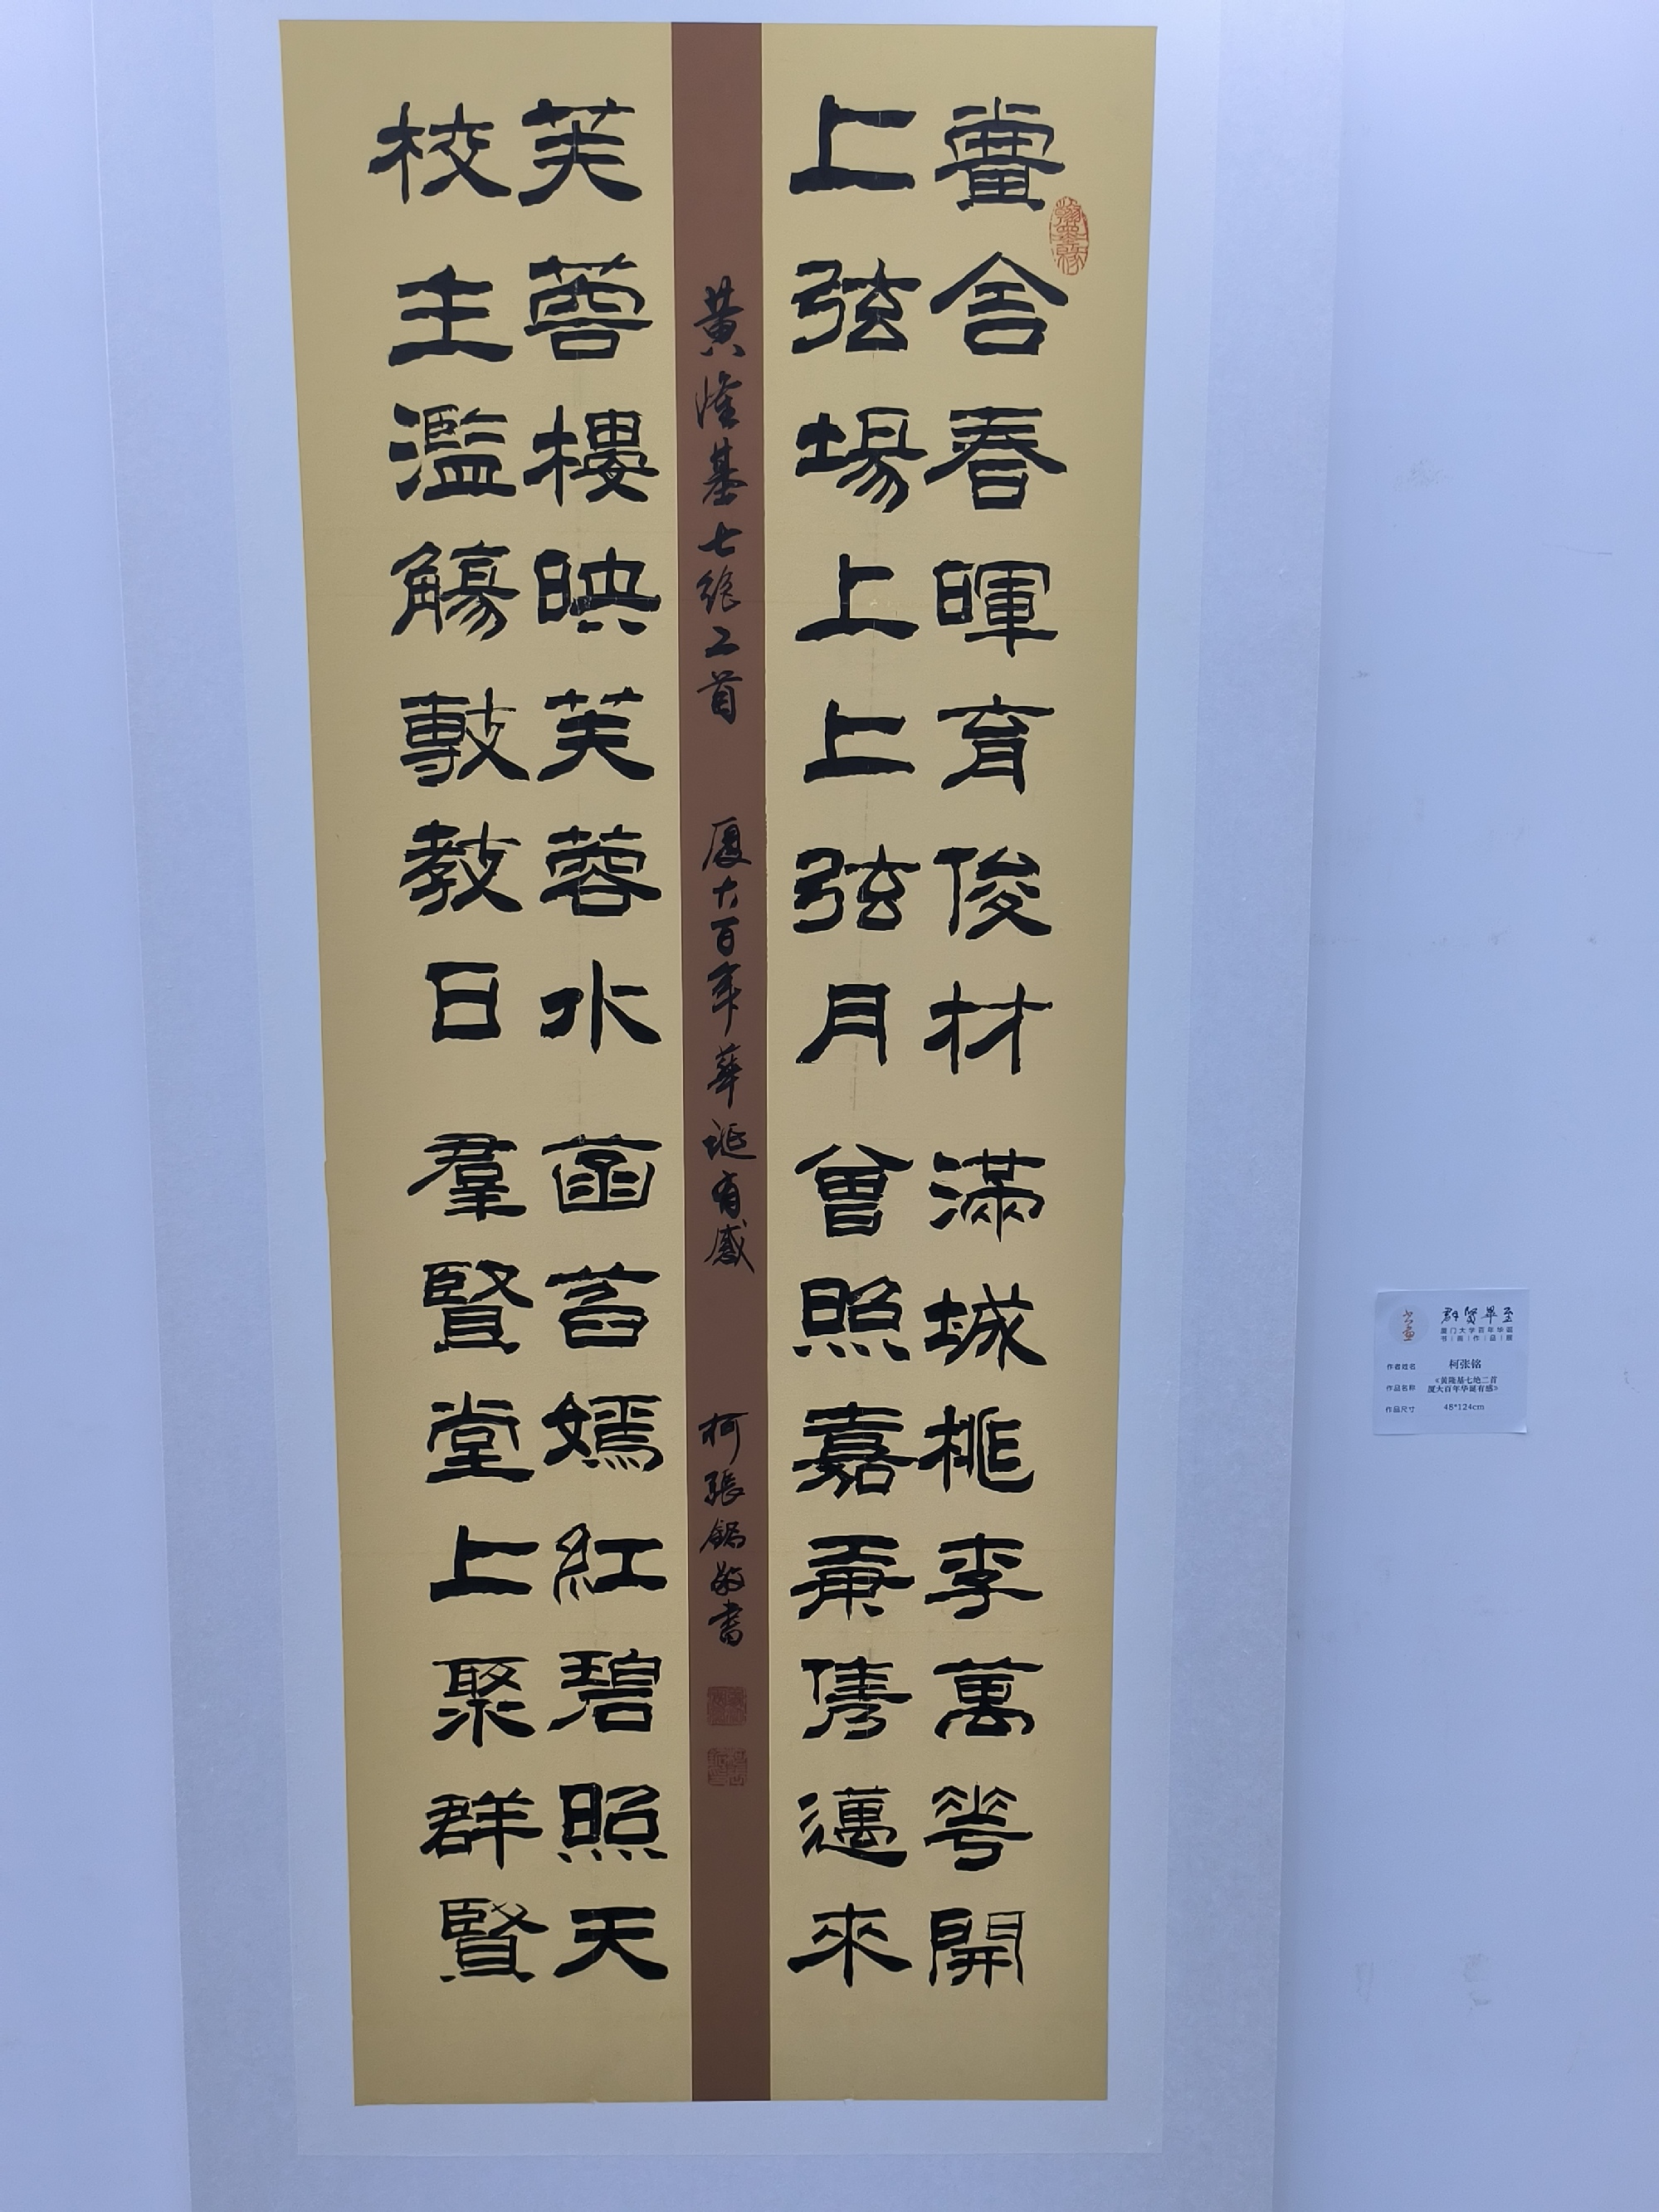 黌舍春暉育俊材滿城桃李萬花開
上弦場上上弦月曾照嘉庚儁邁來
黃隆基七絕二首 厦大百年華誕有感 柯張銘敬書
芙蓉樓映芙蓉水菡萏嫣紅碧照天
校主濫觴敷教日羣賢堂上聚群賢
翰墨緣
群賢畢至
厦门大学百年华诞
书画作品展
作者姓名 柯张铭
作品名称 《黄隆基七绝二首
厦大百年华诞有感》
作品尺寸 48*124cm